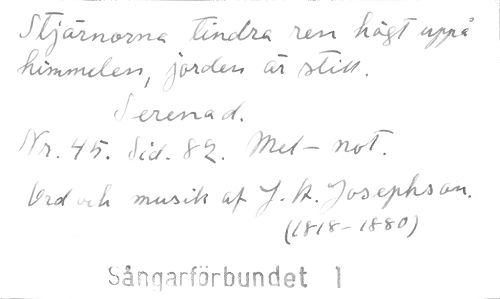 Stjärnorna tindra ren högt uppå
himmelen, jorden är still.
Serenad.
Nr. 45. Sid. 82. Mel-not.
Ord och musik af J. A. Josephson.
(1818-1880)
Sångarförbundet 1